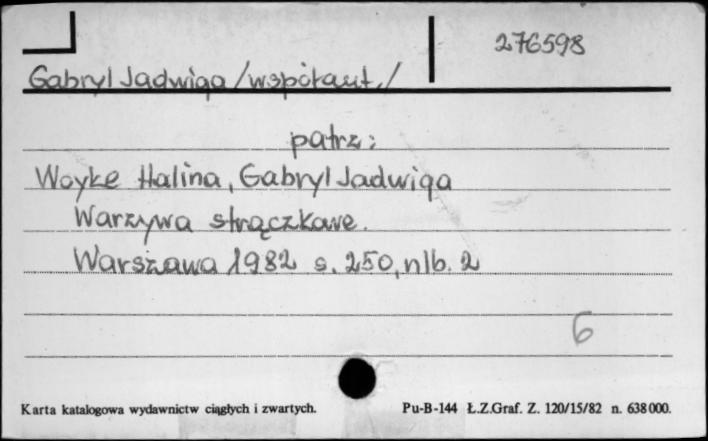 276598
Gabryl Jadwiga /współaut./
patrz:
Woyke Halina, Gabryl Jadwiga
Warzywa strączkowe.
Warszawa 1982 s. 250, nlb. 2
6
Karta katalogowa wydawnictw ciągłych i zwartych. Pu-B-144 Ł.Z.Graf. Z. 120/15/82 n. 638000.